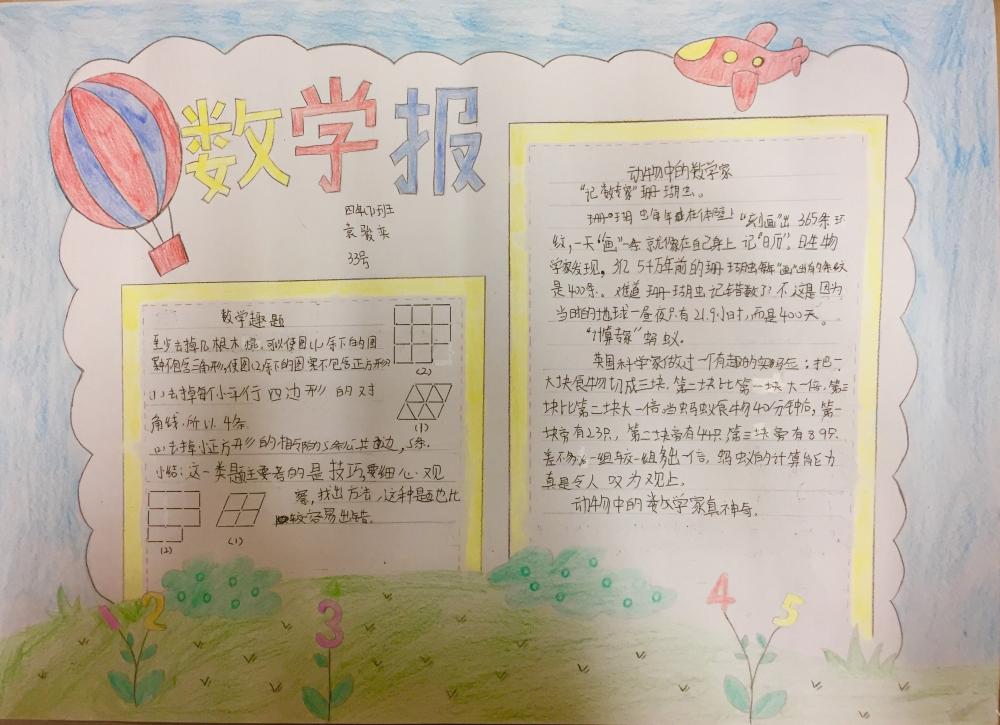 数学报
四年(1)班
袁骏奕
33号
数学趣题
至少去掉几根木棍,可以使图(1)余下的图
案不包含三角形,使图(2)余下的图案不包含正方形?
(1)去掉每个小平行四边形的对
角线,所以4条
(2)去掉小正方形的相邻的5条公共边,5条.
小结:这一类题主要考的是技巧,要细心观
察,找出方法,这种题也比
较容易出错.
(2)
(1)
(2)
(1)
动物中的数学家
“记数专家”珊瑚虫。
珊瑚虫每年在体壁上“刻画”出365条环
纹,一天“画”一条就像在自己身上记“日历”,且生物
学家发现,
5千万年前的珊瑚虫每年“画”出的条纹
是400条。难道珊瑚虫记错数了?不,这是因为
当时的地球一昼夜只有21.9小时,而是400天。
“计算专家”蚂蚁.
英国科学家做过一个有趣的实验:把一
大块食物切成三块,第二块比第一块大一倍,第三
块比第二块大一倍.当蚂蚁食物40分钟后,第一
块旁有23只,第二块旁有44只,第三块旁有89只.
差不多一组与一组多出一倍,蚂蚁的计算能力
真是令人叹为观止,
动物中的数学家真神奇.
1
2
3
4
5